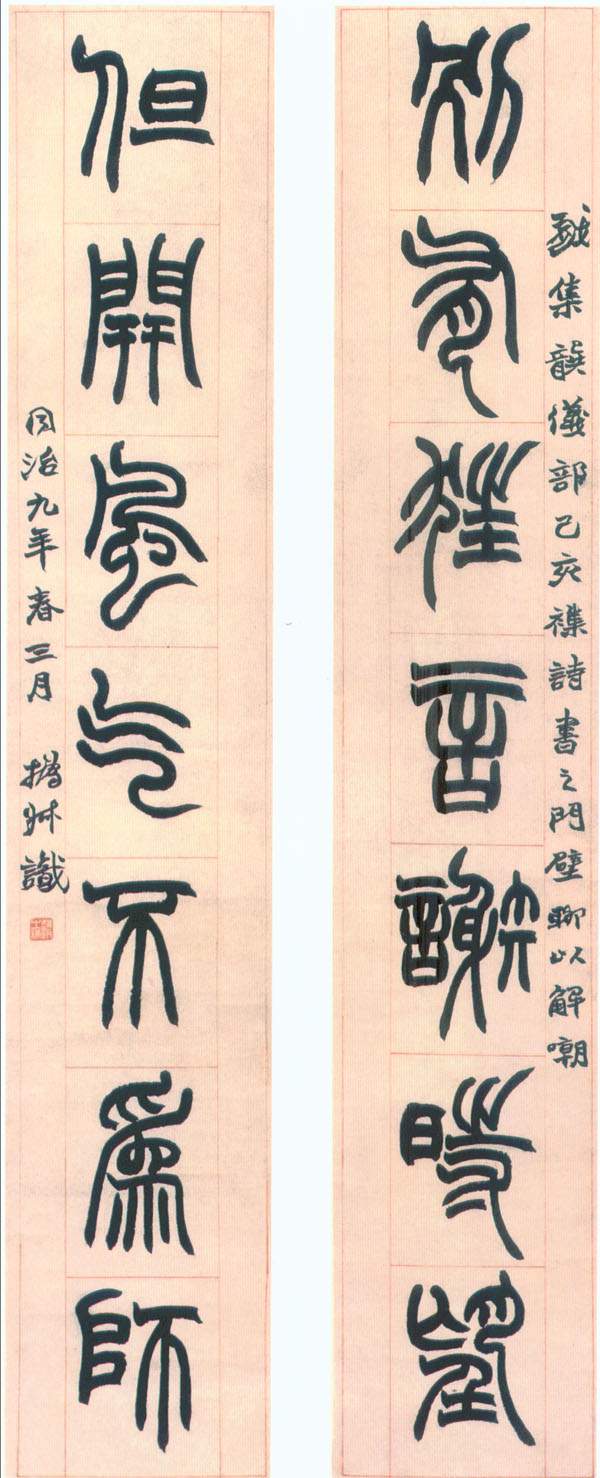 別有狂言謝時望
戲集龔儀部己亥襍詩書之門壁聊以解嘲
但開風气不為師
同治九年春三月 撝叔識